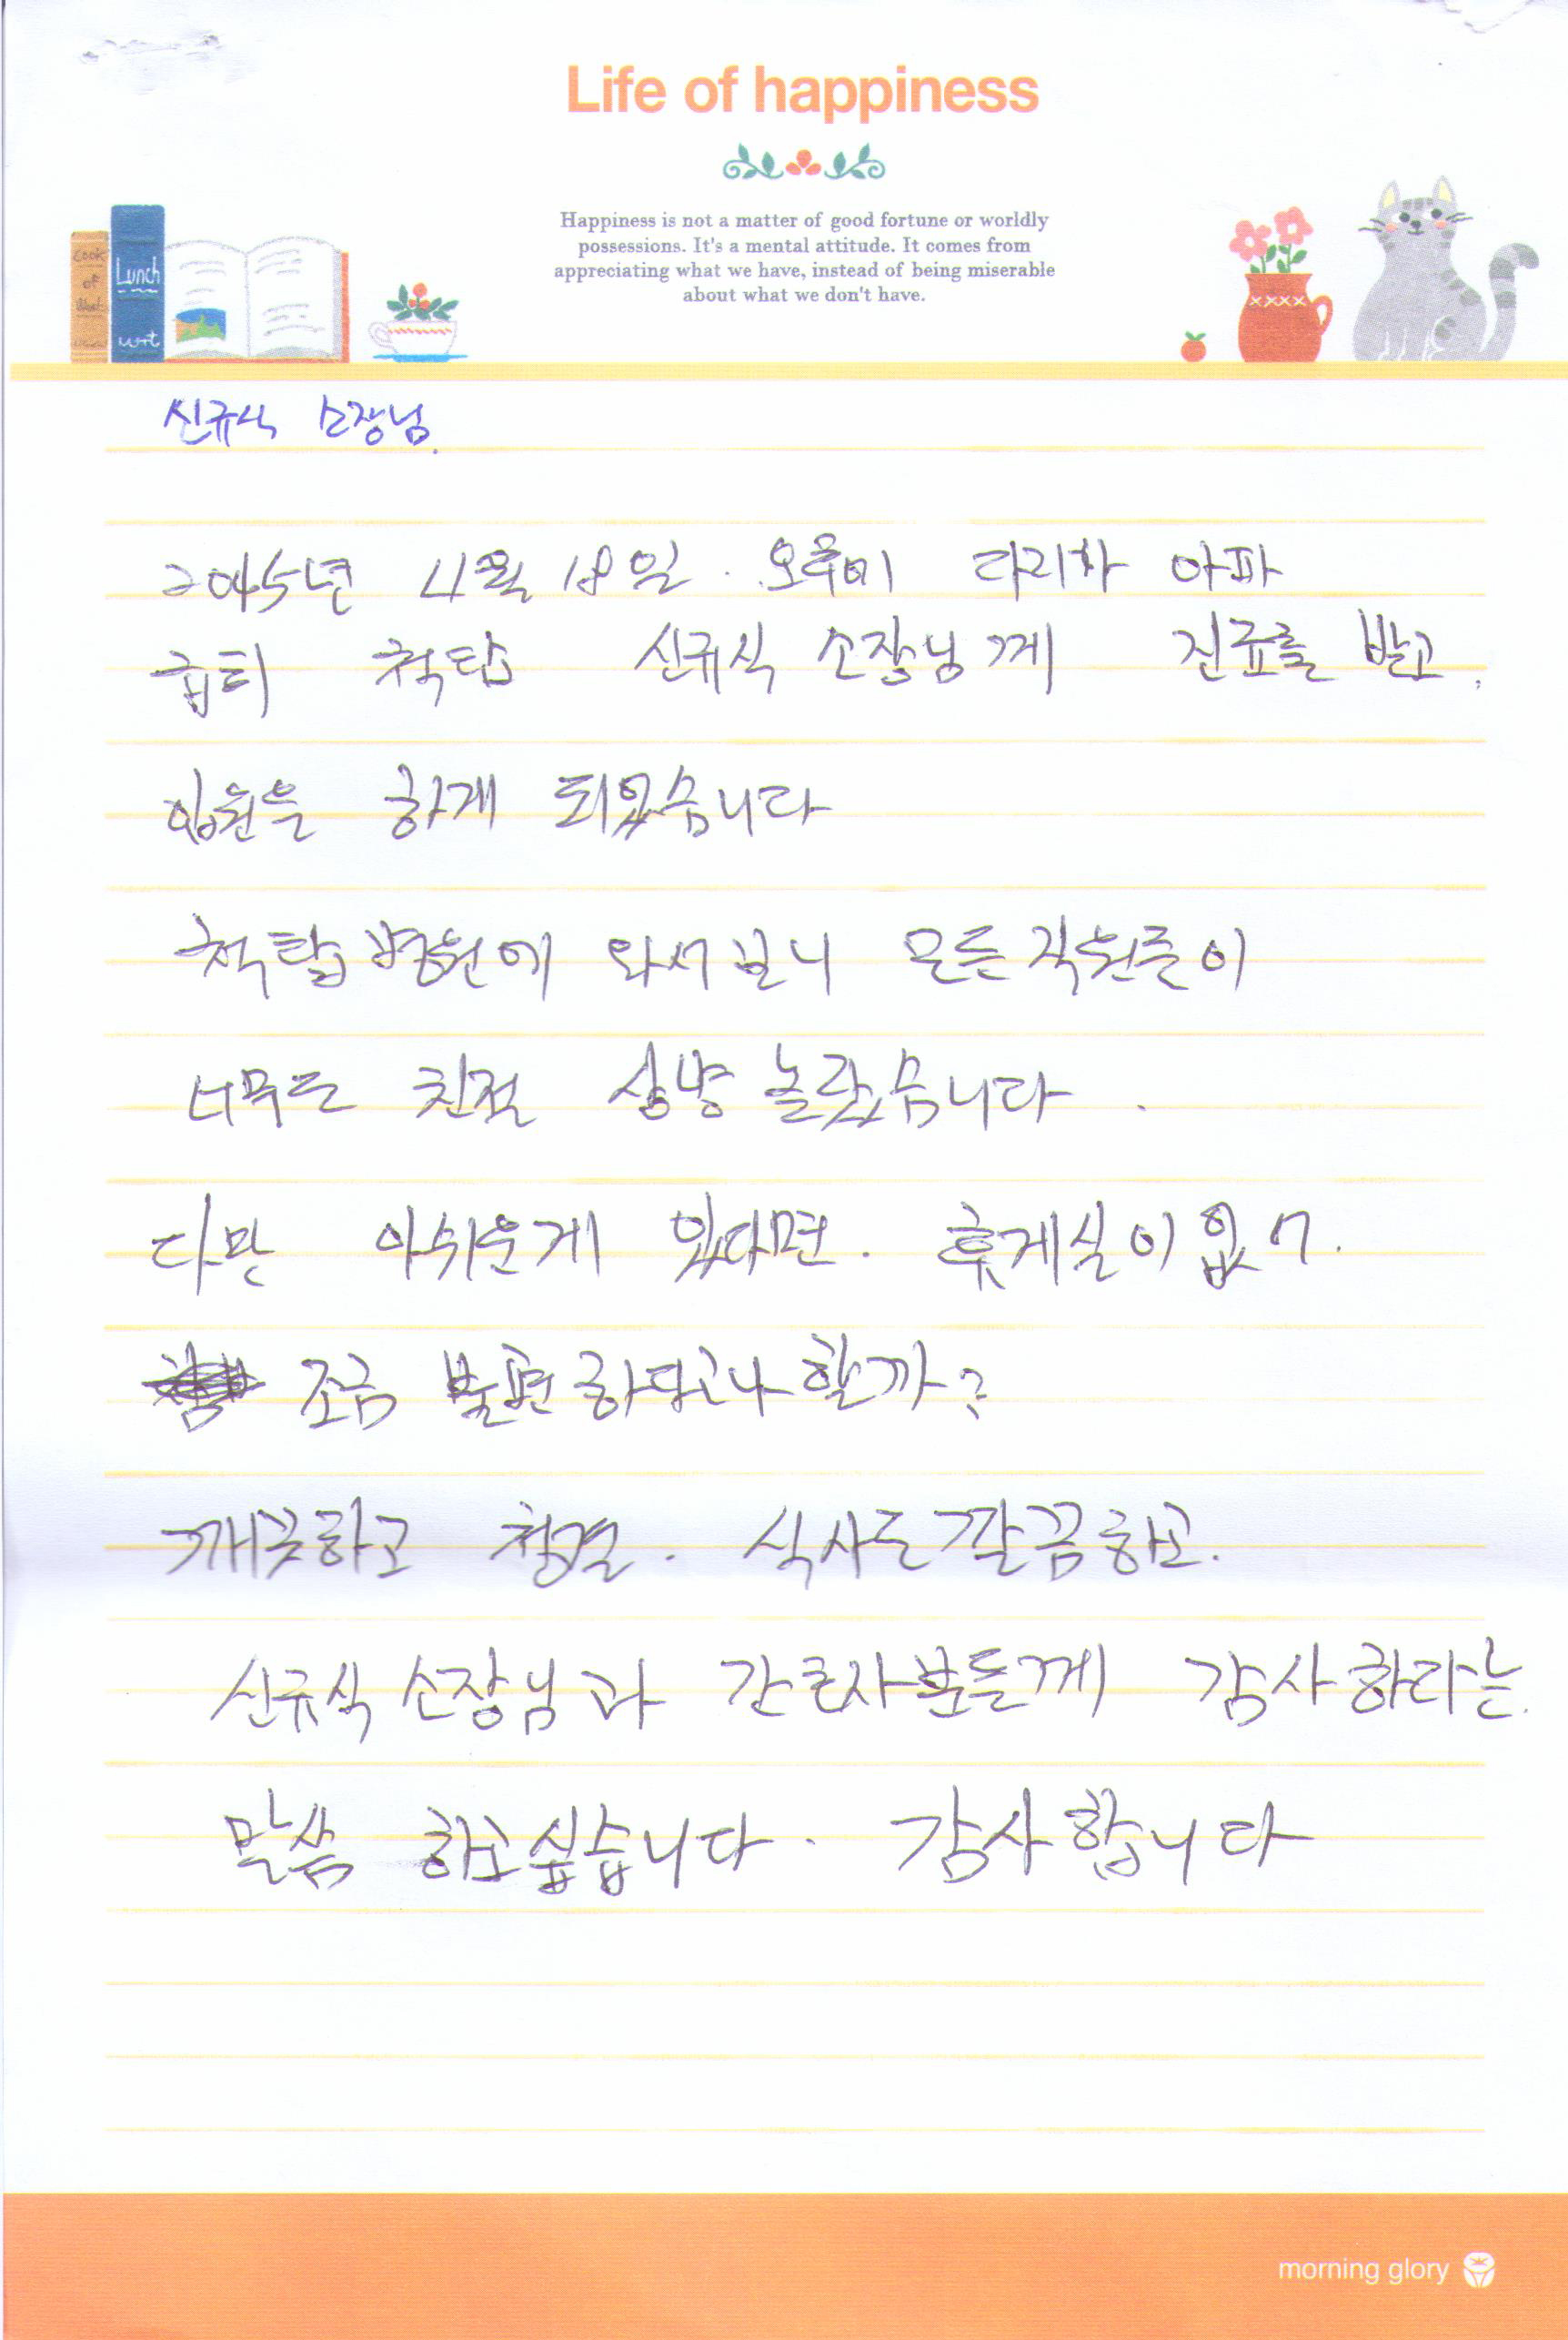 Life of happiness
Happiness is not a matter of good fortune or worldly
possessions. It's a mental attitude. It comes from
appreciating what we have, instead of being miserable
about what we don't have.
Cook
of
Lunch
신규식 소장님.
11월 18일. 다리가 아파
척탑 신규식 소장님께 진료를 받고,
입원을 하게 되었습니다
척탑병원에 와서보니 모든직원들이
너무도 친절 상냥 놀랐습니다.
다만 아쉬운게 있다면. 휴게실이 없어.
조금 불편하다고나 할까?
깨끗하고 청결. 식사도깔끔하고.
신규식 소장님과 간호사분들께 감사하라는.
말씀 하고싶습니다. 감사합니다
morning glory